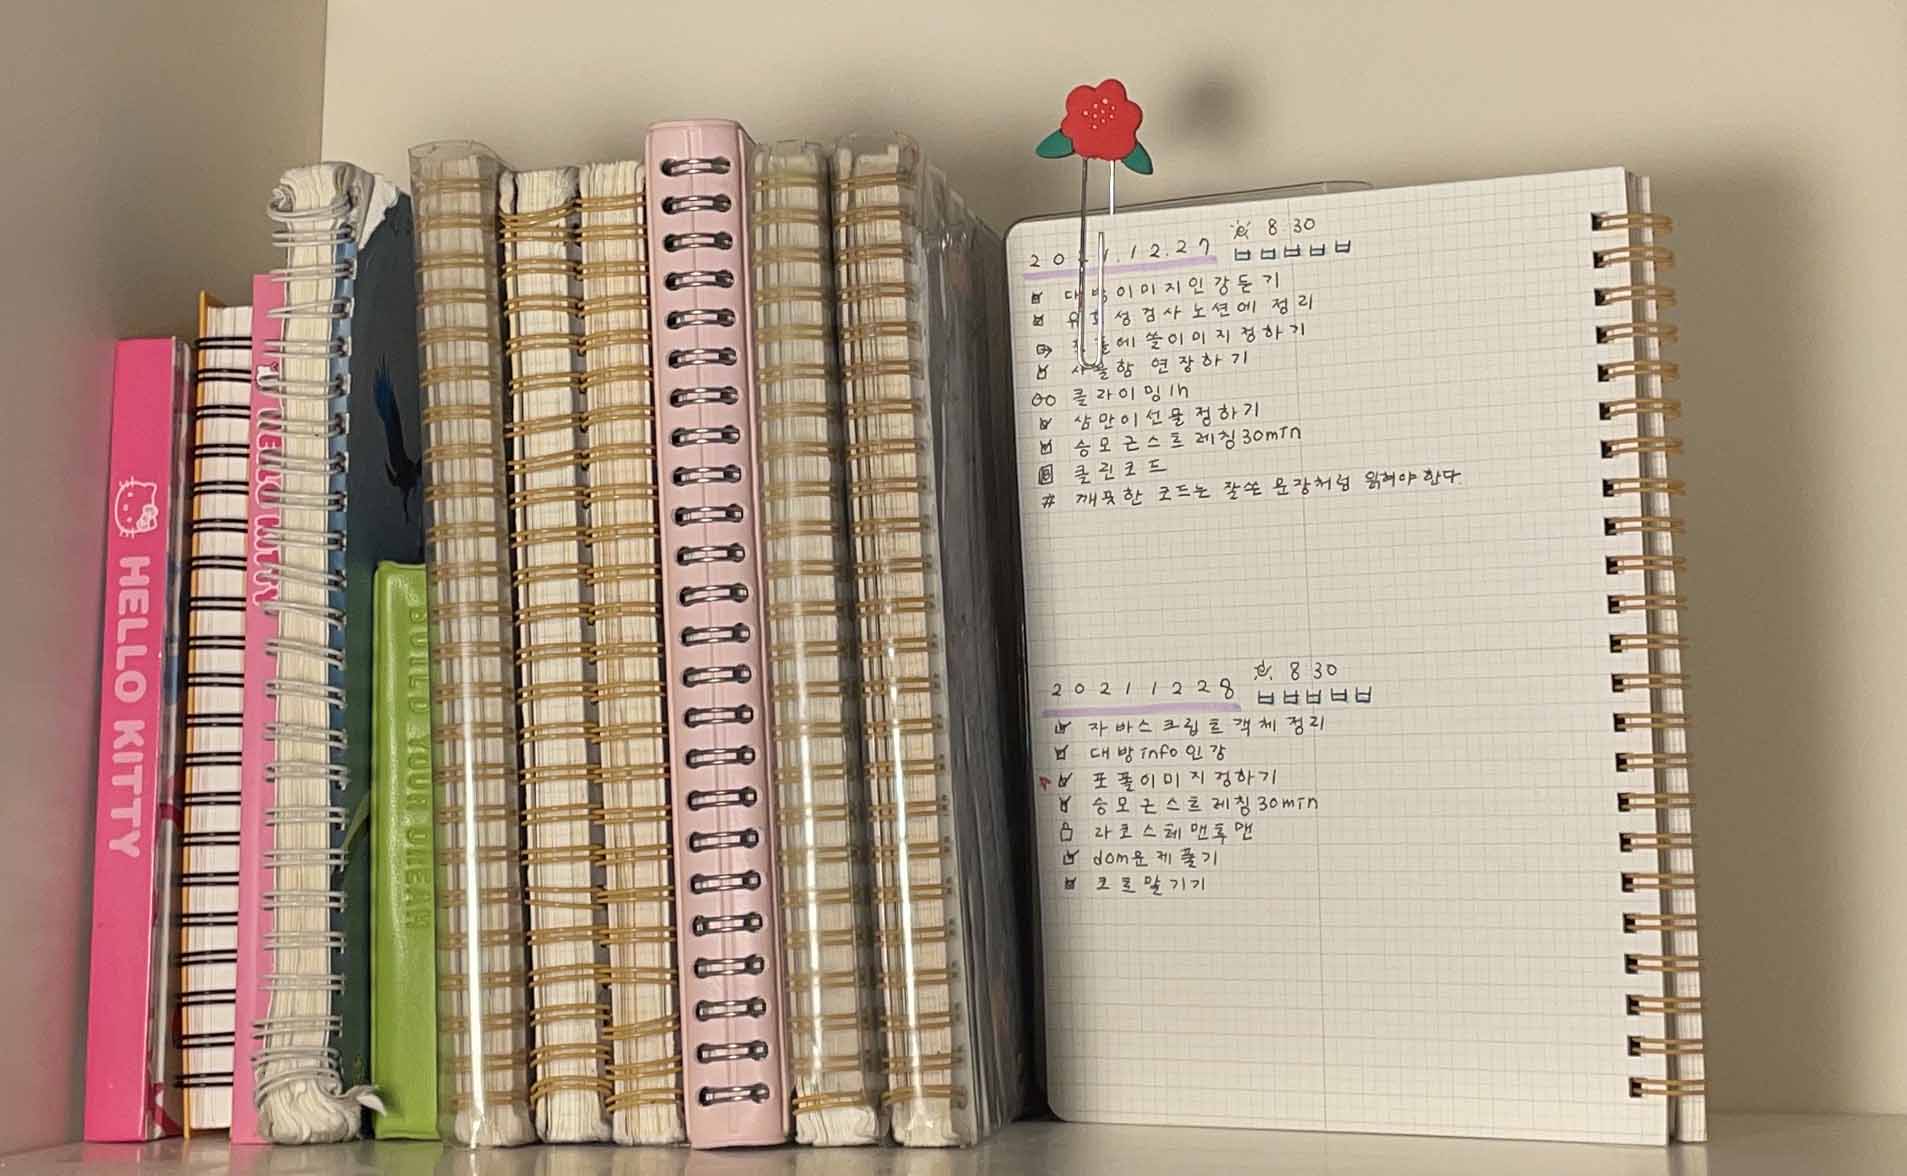 HELLO KITTY
HELLO KITTY
BUILD YOUR DREAM
8 30
20 1.12.27
이미지인강듣기
성검사 노션에 정리
에 쓸이미지정하기
사물함 연장하기
클라이밍1h
삼만이선물정하기
승모근스트레칭30min
클린코드
# 깨끗한 코드는 잘쓴 문장처럼 읽혀야한다.
8 30
20211228
자바스크립트객체정리
대방info인강
포폴이미지정하기
승모근스트레칭30min
라코스테맨투맨
dom문제풀기
코트맡기기